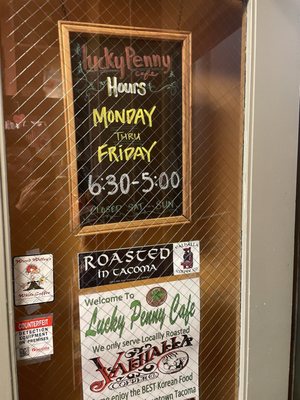 Lucky Penny
cafe
Hours
MONDAY
THRU
FRIDAY
6:30-5:00
CLOSED SAT SUN
ROASTED
IN TACOMA
VALHALLA
COFFEE
Welcome To
Lucky Penny Cafe
We only serve Locally Roasted
VALHALLA
COFFEE
enjoy the BEST Korean Food
town Tacoma
COUNTERFEIT
DETECTION
EQUIPMENT
ON PREMISES